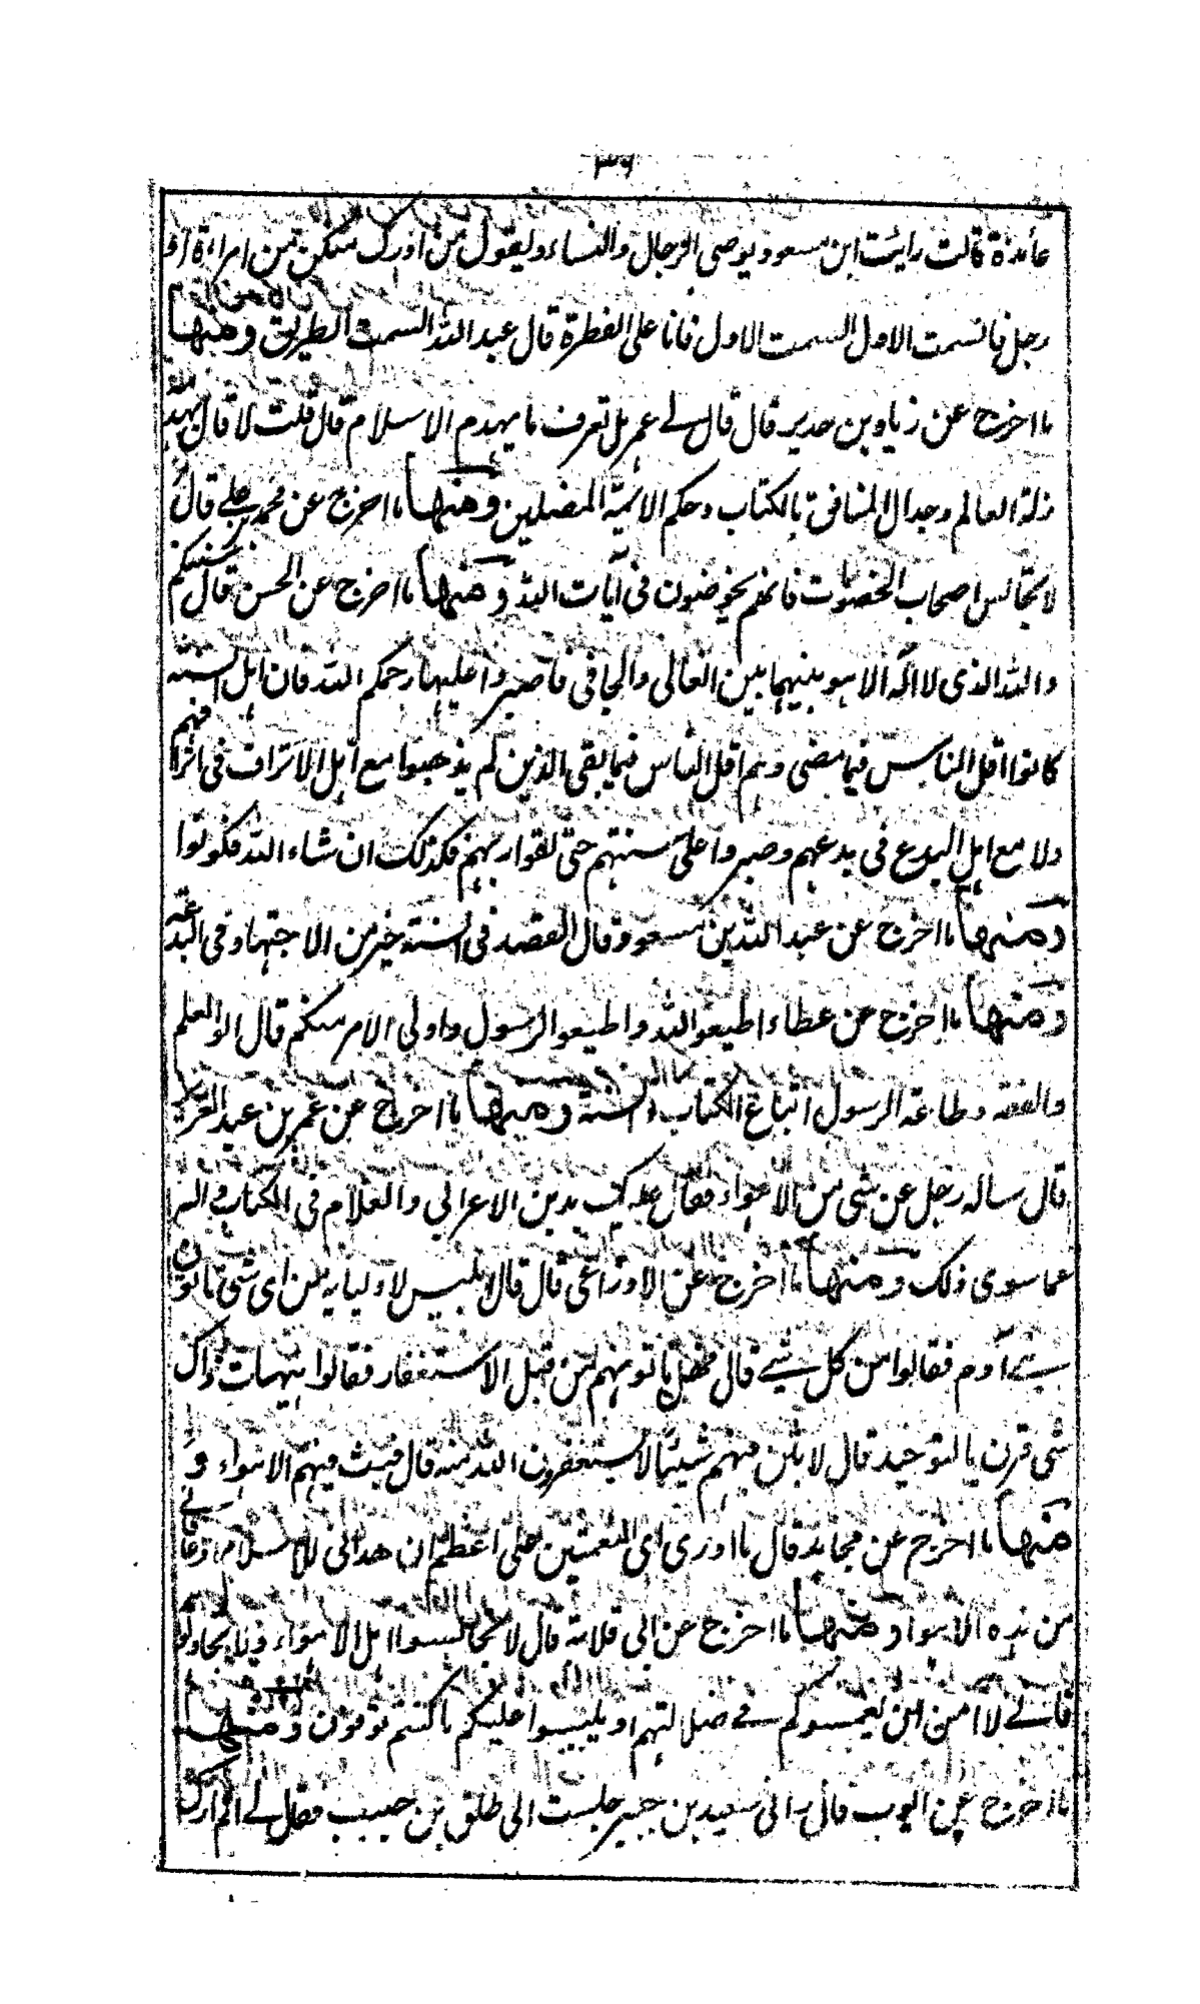 ٣٦
عائذة قالت رايت ابن مسعود يوصى الرجال والنساء ويقول من ادرك منكن من امراءة او
رجل فالسمت الاول السمت الاول فانا على الفطرة قال عبد الله السمت الطريق ومنها
ما اخرج عن زياد بن حدير قال قال لے عمر هل تعرف ما يهدم الاسلام قال قلت لا قال يهدمه
زلة العالم وجدال المنافق بالكتاب وحكم الائمة المضلين ومنها ما اخرج عن محمد بن علے قال
لا تجالس اصحاب الخصومات فانهم يخوضون فى آيات الله ومنها ما اخرج عن الحسن قال سنتكم
والله الذى لا اله الا هو بينهما بين الغالى والجافى فاصبروا عليها رحمكم الله فان اهل السنة
كانوا اقل الناس فيما مضى وهم اقل الناس فيما بقى الذين لم يذهبوا مع اهل الاتراف فى اترافهم
ولا مع اهل البدع فى بدعهم وصبروا على سنتهم حتى لقوا ربهم فكذلك ان شاء الله فكونوا
ومنها ما اخرج عن عبد الله بن مسعود قال القصد فى السنة خير من الاجتهاد فى البدعة
ومنها ما اخرج عن عطاء اطيعوا الله واطيعوا الرسول واولى الامر منكم قال اولو العلم
والفقه وطاعة الرسول اتباع الكتاب والسنة ومنها ما اخرج عن عمر بن عبد العزيز
قال ساله رجل عن شى من الاهواء فقال عليك بدين الاعرابى والغلام فى الكتاب واله
عما سوى ذلك ومنها ما اخرج عن الاوزاعى قال قال ابليس لاوليايه من اى شى تاتون
بنے آدم فقالوا من كل شے قال فهل تاتونهم من قبل الاستغفار فقالوا هيهات ذاك
شى قرن بالتوحيد قال لابثن فيهم شيئا لا يستغفرون الله منه قال فبث فيهم الاهواء و
منها ما اخرج عن مجاهد قال ما ادرى اى النعمتين على اعظم ان هدانى للاسلام او عافانے
من هذه الاهوا ومنها ما اخرج عن ابى قلابة قال لا تجالسوا اهل الاهواء ولا تجادلو
فانے لا امن ان يغمسوكم فے ضلالتهم او يلبسوا عليكم ما كنتم تعرفون ومنها
ما اخرج عن ايوب قال رانى سعيد بن جبير جلست الى طلق بن حبيب فقال لے الم ارك